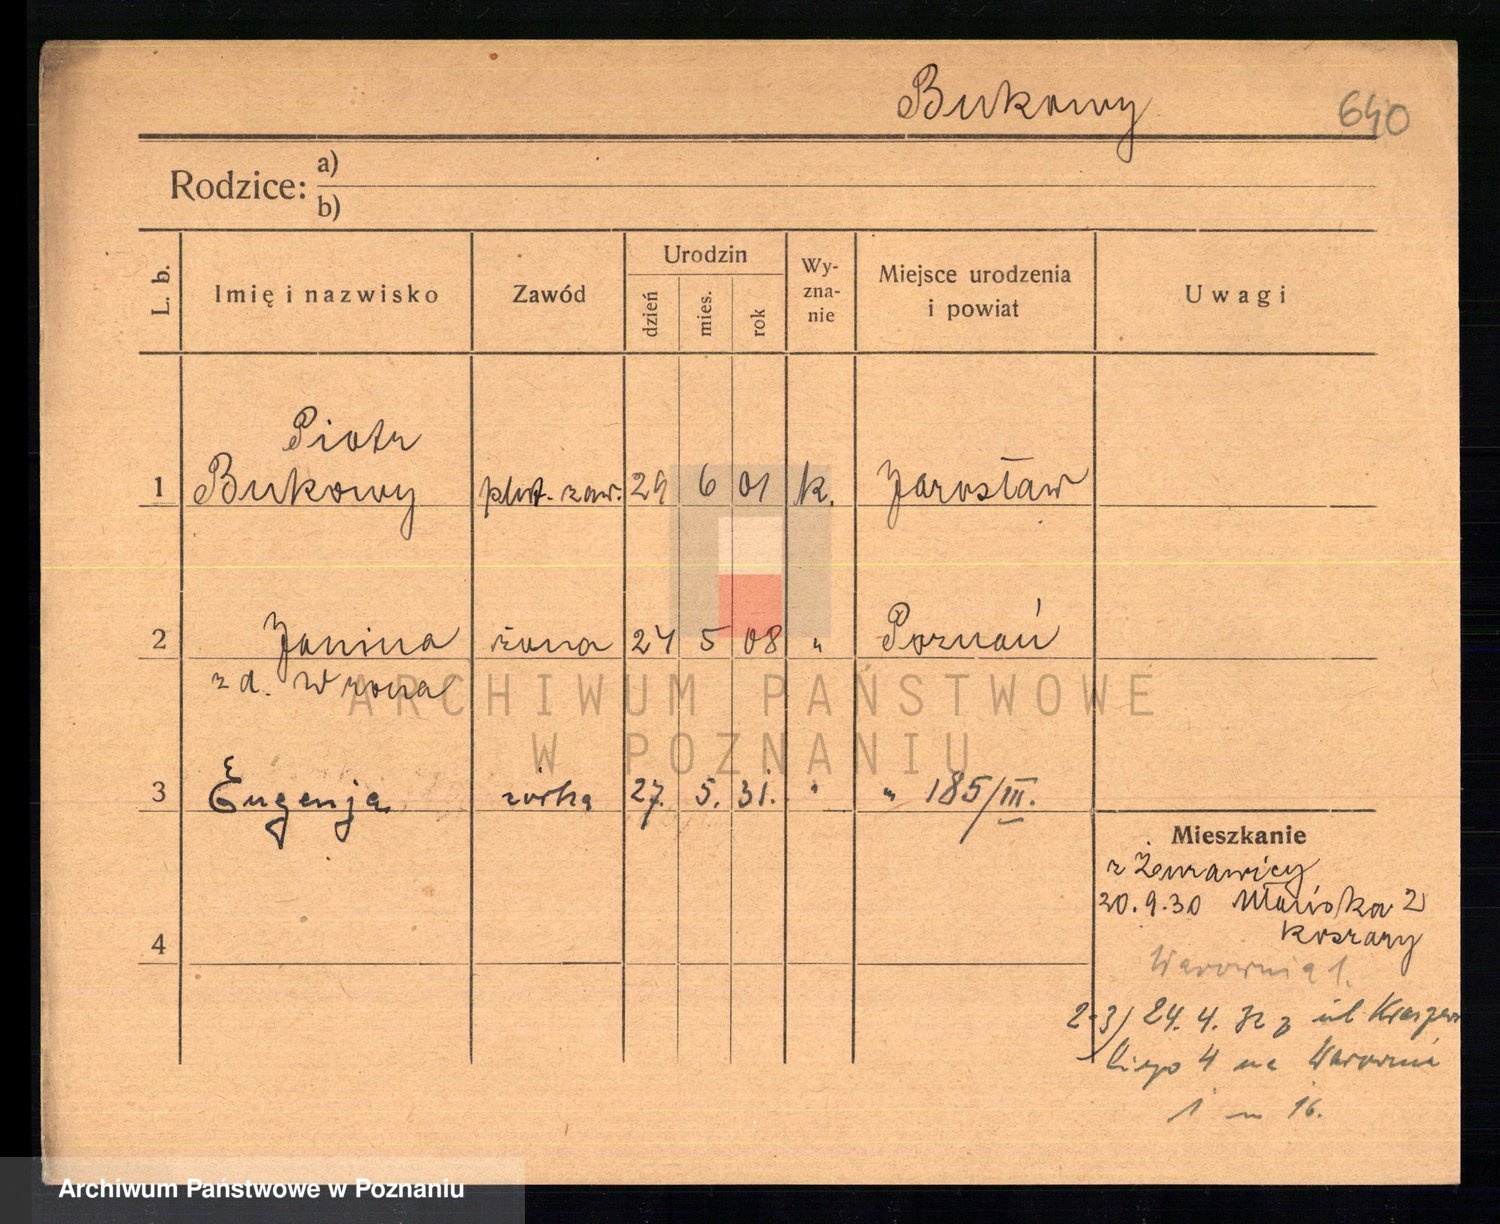 Bukowy 640
Rodzice: a)
b)
L. b. Imię i nazwisko Zawód Urodzin dzień mies. rok Wy-zna-nie Miejsce urodzenia i powiat Uwagi
Piotr
1 Bukowy plut. zaw. 29 6 01 k. Jarosław
2 Janina żona 24 5 08 " Poznań
z d. Wrona
ARCHIWUM PAŃSTWOWE
W POZNANIU
3 Eugenja córka 27. 5. 31. " " 185/III.
Mieszkanie
z Żurawicy
20.9.30 2
koszary
4
Warownia 1.
2-3) 24. 4. 32 z ul Kraszew
skiego 4 na Warownia
1 m 16.
Archiwum Państwowe w Poznaniu